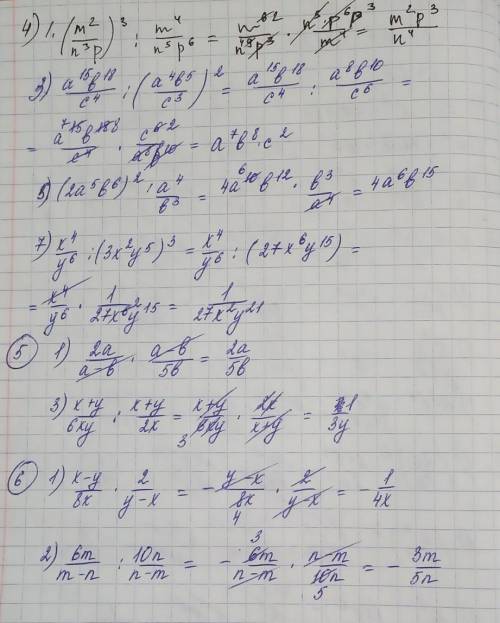 4) 1. (m²/n³p)³ : m⁴/n⁵p⁶ = m⁶²/n⁹⁴p³ · n⁵ · p⁶p³/m⁴ = m²p³/n⁴
3) a¹⁵b¹⁸/c⁴ : (a⁴b⁵/c³)² = a¹⁵b¹⁸/c⁴ : a⁸b¹⁰/c⁶ =
= a⁷¹⁵b¹⁸⁸/c⁴ · c⁶²/a⁸b¹⁰ = a⁷b⁸·c²
5) (2a⁵b⁶)² : a⁴/b³ = 4a⁶¹⁰b¹² · b³/a⁴ = 4a⁶b¹⁵
7) x⁴/y⁶ : (3x²y⁵)³ = x⁴/y⁶ : (27x⁶y¹⁵) =
= x⁴/y⁶ · 1/27x⁶²y¹⁵ = 1/27x²y²¹
5 1) 2a/a-b · a-b/5b = 2a/5b
3) x+y/6xy : x+y/2x = x+y/6xy 3 · 2x/x+y = 1/3y
6 1) x-y/8x · 2/y-x = - y-x/8x 4 · 2/y-x = - 1/4x
2) 6m/m-n : 10n/n-m = - 3 6m/n-m · n-m/10n 5 = - 3m/5n